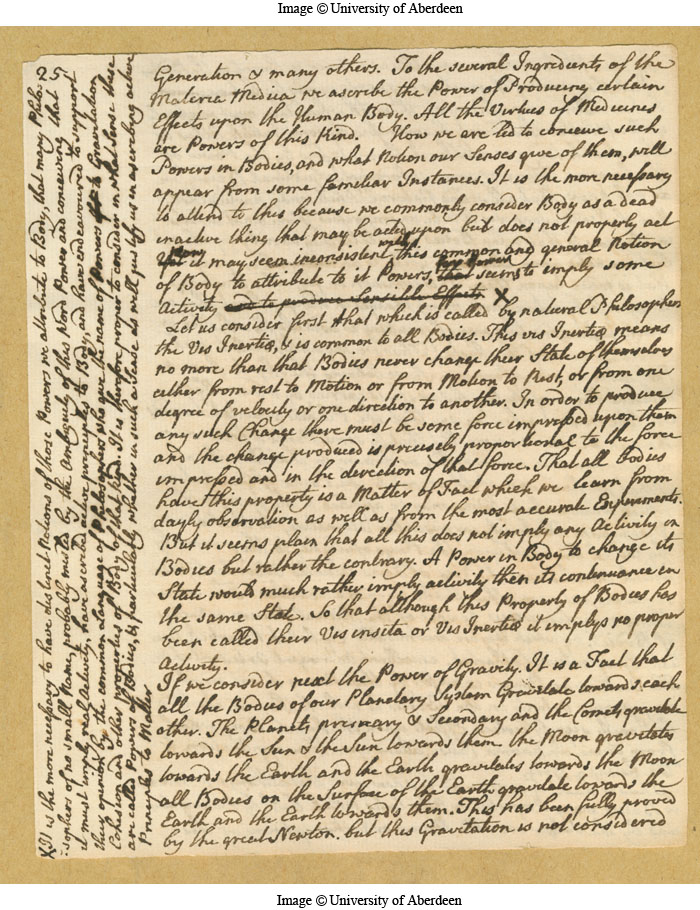 Image © University of Aberdeen
25
Generation & many others. To the several Ingredients of the
Materia Medica we ascribe the Power of Producing certain
Effects upon the Human Body. All the Virtues of Medicines
are Powers of this Kind. How we are led to conceive such
Powers in Bodies, and what Notion our Senses give of them, will
appear from some familiar Instances. It is the more necessary
to attend to this because we commonly consider Body as a dead
inactive thing that may be acted upon but does not properly act
it may seem inconsistent with this common and general Notion
of Body to attribute to it Powers, seems to imply some
Activity and to produce Sensible Effects X
Let us consider first that which is called by natural Philosophers
the Vis Inertiæ, & is common to all Bodies. This vis Inertiæ means
no more than that Bodies never change their State of themselves
either from rest to Motion or from Motion to Rest, or from one
degree of velocity or one direction to another. In order to produce
any such Change there must be some force impressed upon them
and the change produced is precisely proportional to the force
impressed and in the direction of that force. That all bodies
have this property is a Matter of Fact which we learn from
dayly observation as well as from the most accurate Experiments.
But it seems plain that all this does not imply any Activity in
Bodies but rather the contrary. A Power in Body to change its
State would much rather imply activity then its continuance in
the same State. So that although this Property of Bodies has
been called their Vis insita or Vis Inertiæ it implys no proper
Activity.
If we consider next the Power of Gravity. It is a Fact that
all the Bodies of our Planetary System Gravitate towards each
other. The Planets primary & Secondary and the Comets gravitate
towards the Sun & the Sun towards them the Moon gravitates
towards the Earth and the Earth gravitates towards the Moon
all Bodies on the Surface of the Earth gravitate towards the
Earth and the Earth towards them. This has been fully proved
by the great Newton. but this Gravitation is not considered
X It is the more necessary to have distinct Notions of those Powers we attribute to Body, that many Philo
sophers of no small Name, probably misled by the Ambiguity of this Word Power and conceiving that
it must imply real Activity, have ascribed active principles to Body, and have endeavoured to support
this opinion by the common language of Philosophers who give the name of Powers to Gravitation
Cohesion and other properties of Body of that kind. It is therefore proper to consider in what Sense these
are called Powers of Bodies, & particularly whether in such a Sense as will justify us in ascribing active
Principles to Matter
Image © University of Aberdeen